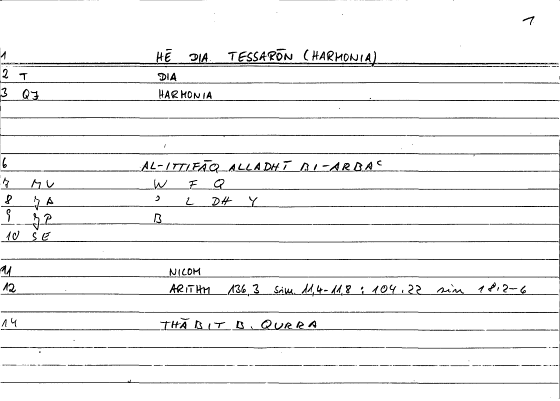 1
1 HĒ DIA TESSARŌN (HARMONIA)
2 T DIA
3 QZ HARMONIA
6 AL-ITTIFĀQ ALLADHĪ BI-ARBAʿ
7 MV W F Q
8 ZA ʾ L DH Y
9 ZP B
10 SE
11 NICOM
12 ARITHM 136,3 sim 11,4-11,8 : 104.22 sim 18,2-6
14 THĀBIT B. QURRA